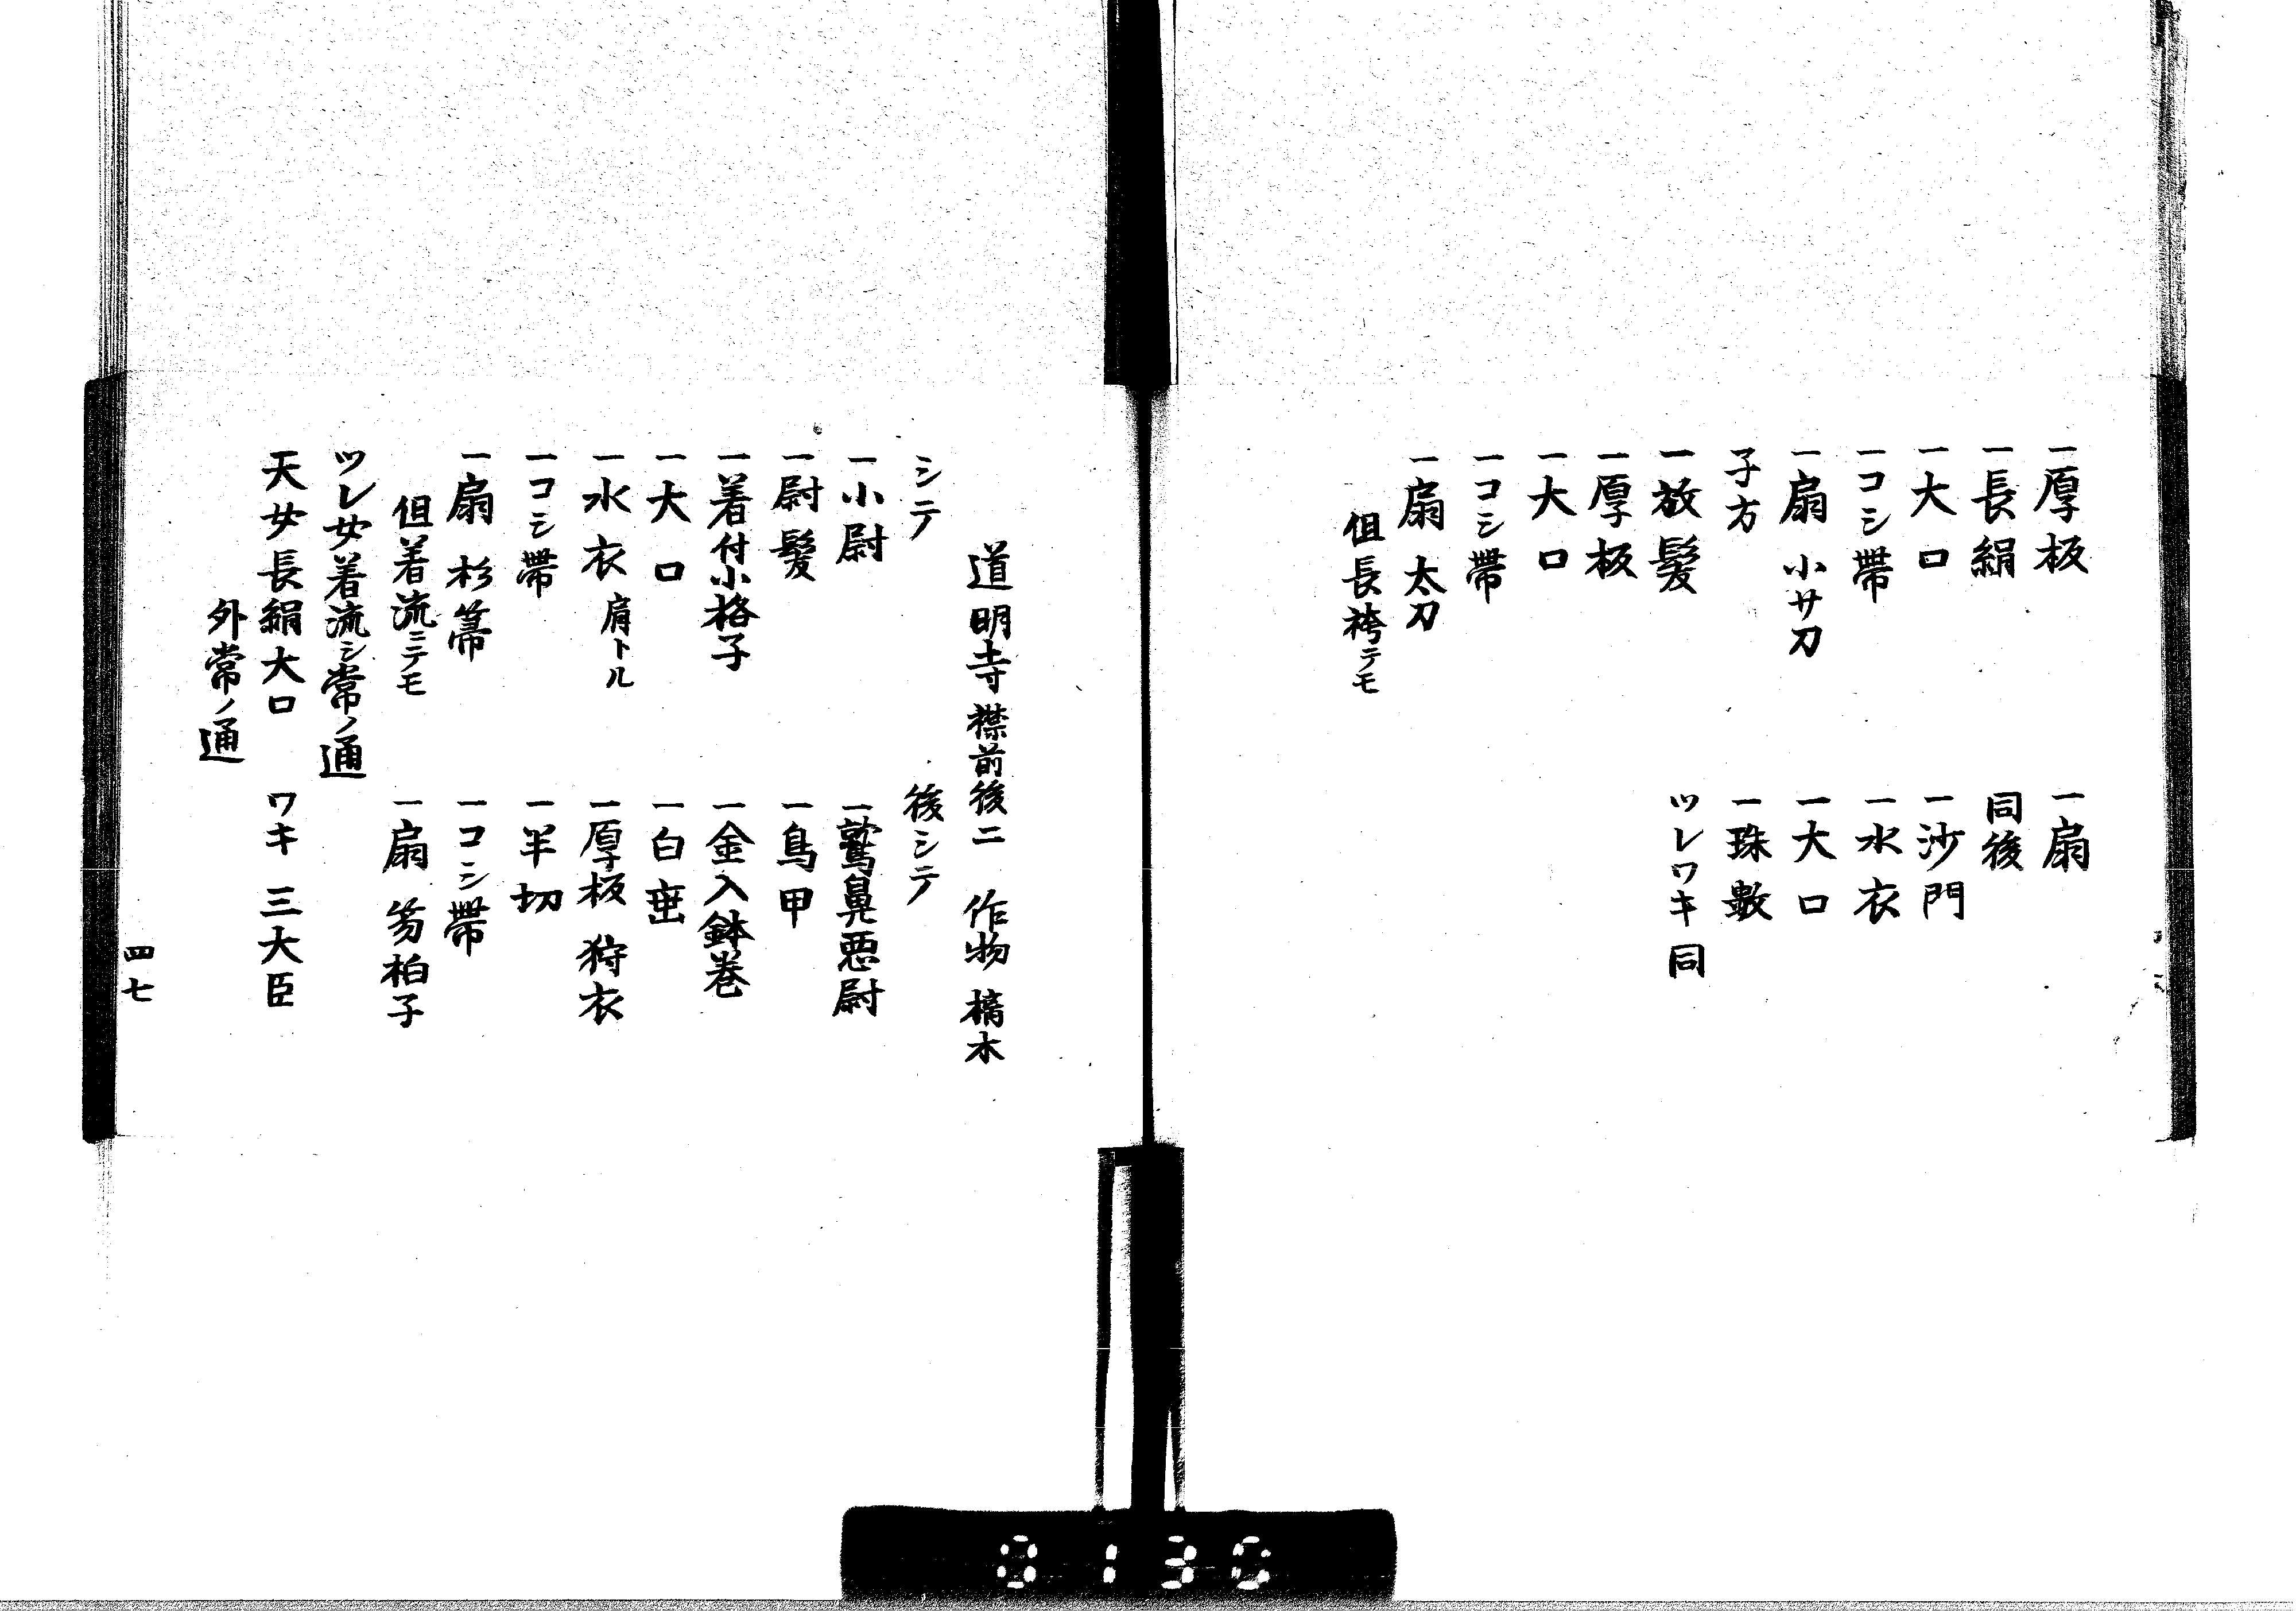 一厚板
一長絹
一大口
一コシ帯
一扇 小サ刀
子方
一放髪
一厚板
一大口
一コシ帯
一扇 太刀
但長袴テモ
一扇
同後
一沙門
一水衣
一大口
一珠數
ツレワキ同
道明寺 襟前後二 作物 槁木
シテ
一小尉
一尉髪
一着付小格子
一大口
一水衣 肩トル
一コシ帯
一扇 杉箒
但着流ニテモ
ツレ女着流シ常ノ通
天女長絹大口
外常ノ通
後シテ
一鷲鼻悪尉
一鳥甲
一金入鉢巻
一白垂
一厚板 狩衣
一半切
一コシ帯
一扇 笏柏子
ワキ 三大臣
四七
0130